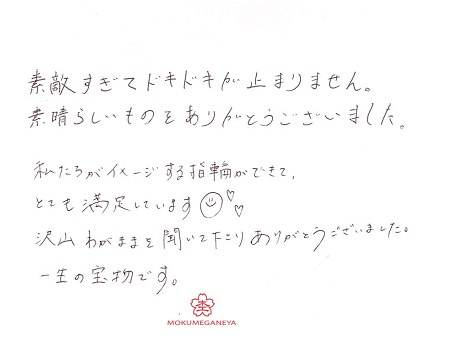 素敵すぎてドキドキが止まりません。
素晴らしいものをありがとうございました。
私たちがイメージする指輪ができて、
とても満足しています
沢山わがままを聞いて下さりありがとうございました。
一生の宝物です。
MOKUMEGANEYA